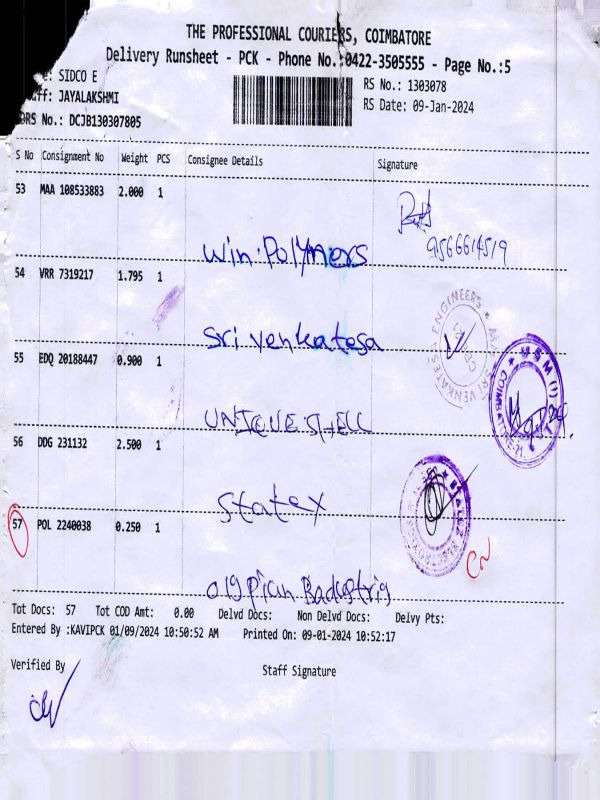 THE PROFESSIONAL COURIERS, COIMBATORE
Delivery Runsheet - PCK - Phone No.:0422-3505555 - Page No.:5
: SIDCO E
: JAYALAKSHMI
DRS No.: DCJB130307805
RS No.: 1303078
RS Date: 09-Jan-2024
S No Consignment No Weight PCS Consignee Details Signature
53 MAA 108533883 2.000 1
Win Polymers
9566614519
54 VRR 7319217 1.795 1
Sri venkatesa
55 EDQ 20188447 0.900 1
UNIQUE SHELL
56 DDG 231132 2.500 1
Statex
57 POL 2240038 0.250 1
Tot Docs: 57 Tot COD Amt: 0.00 Delvd Docs: Non Delvd Docs: Delvy Pts:
Entered By :KAVIPCK 01/09/2024 10:50:52 AM Printed On: 09-01-2024 10:52:17
Verified By
Staff Signature